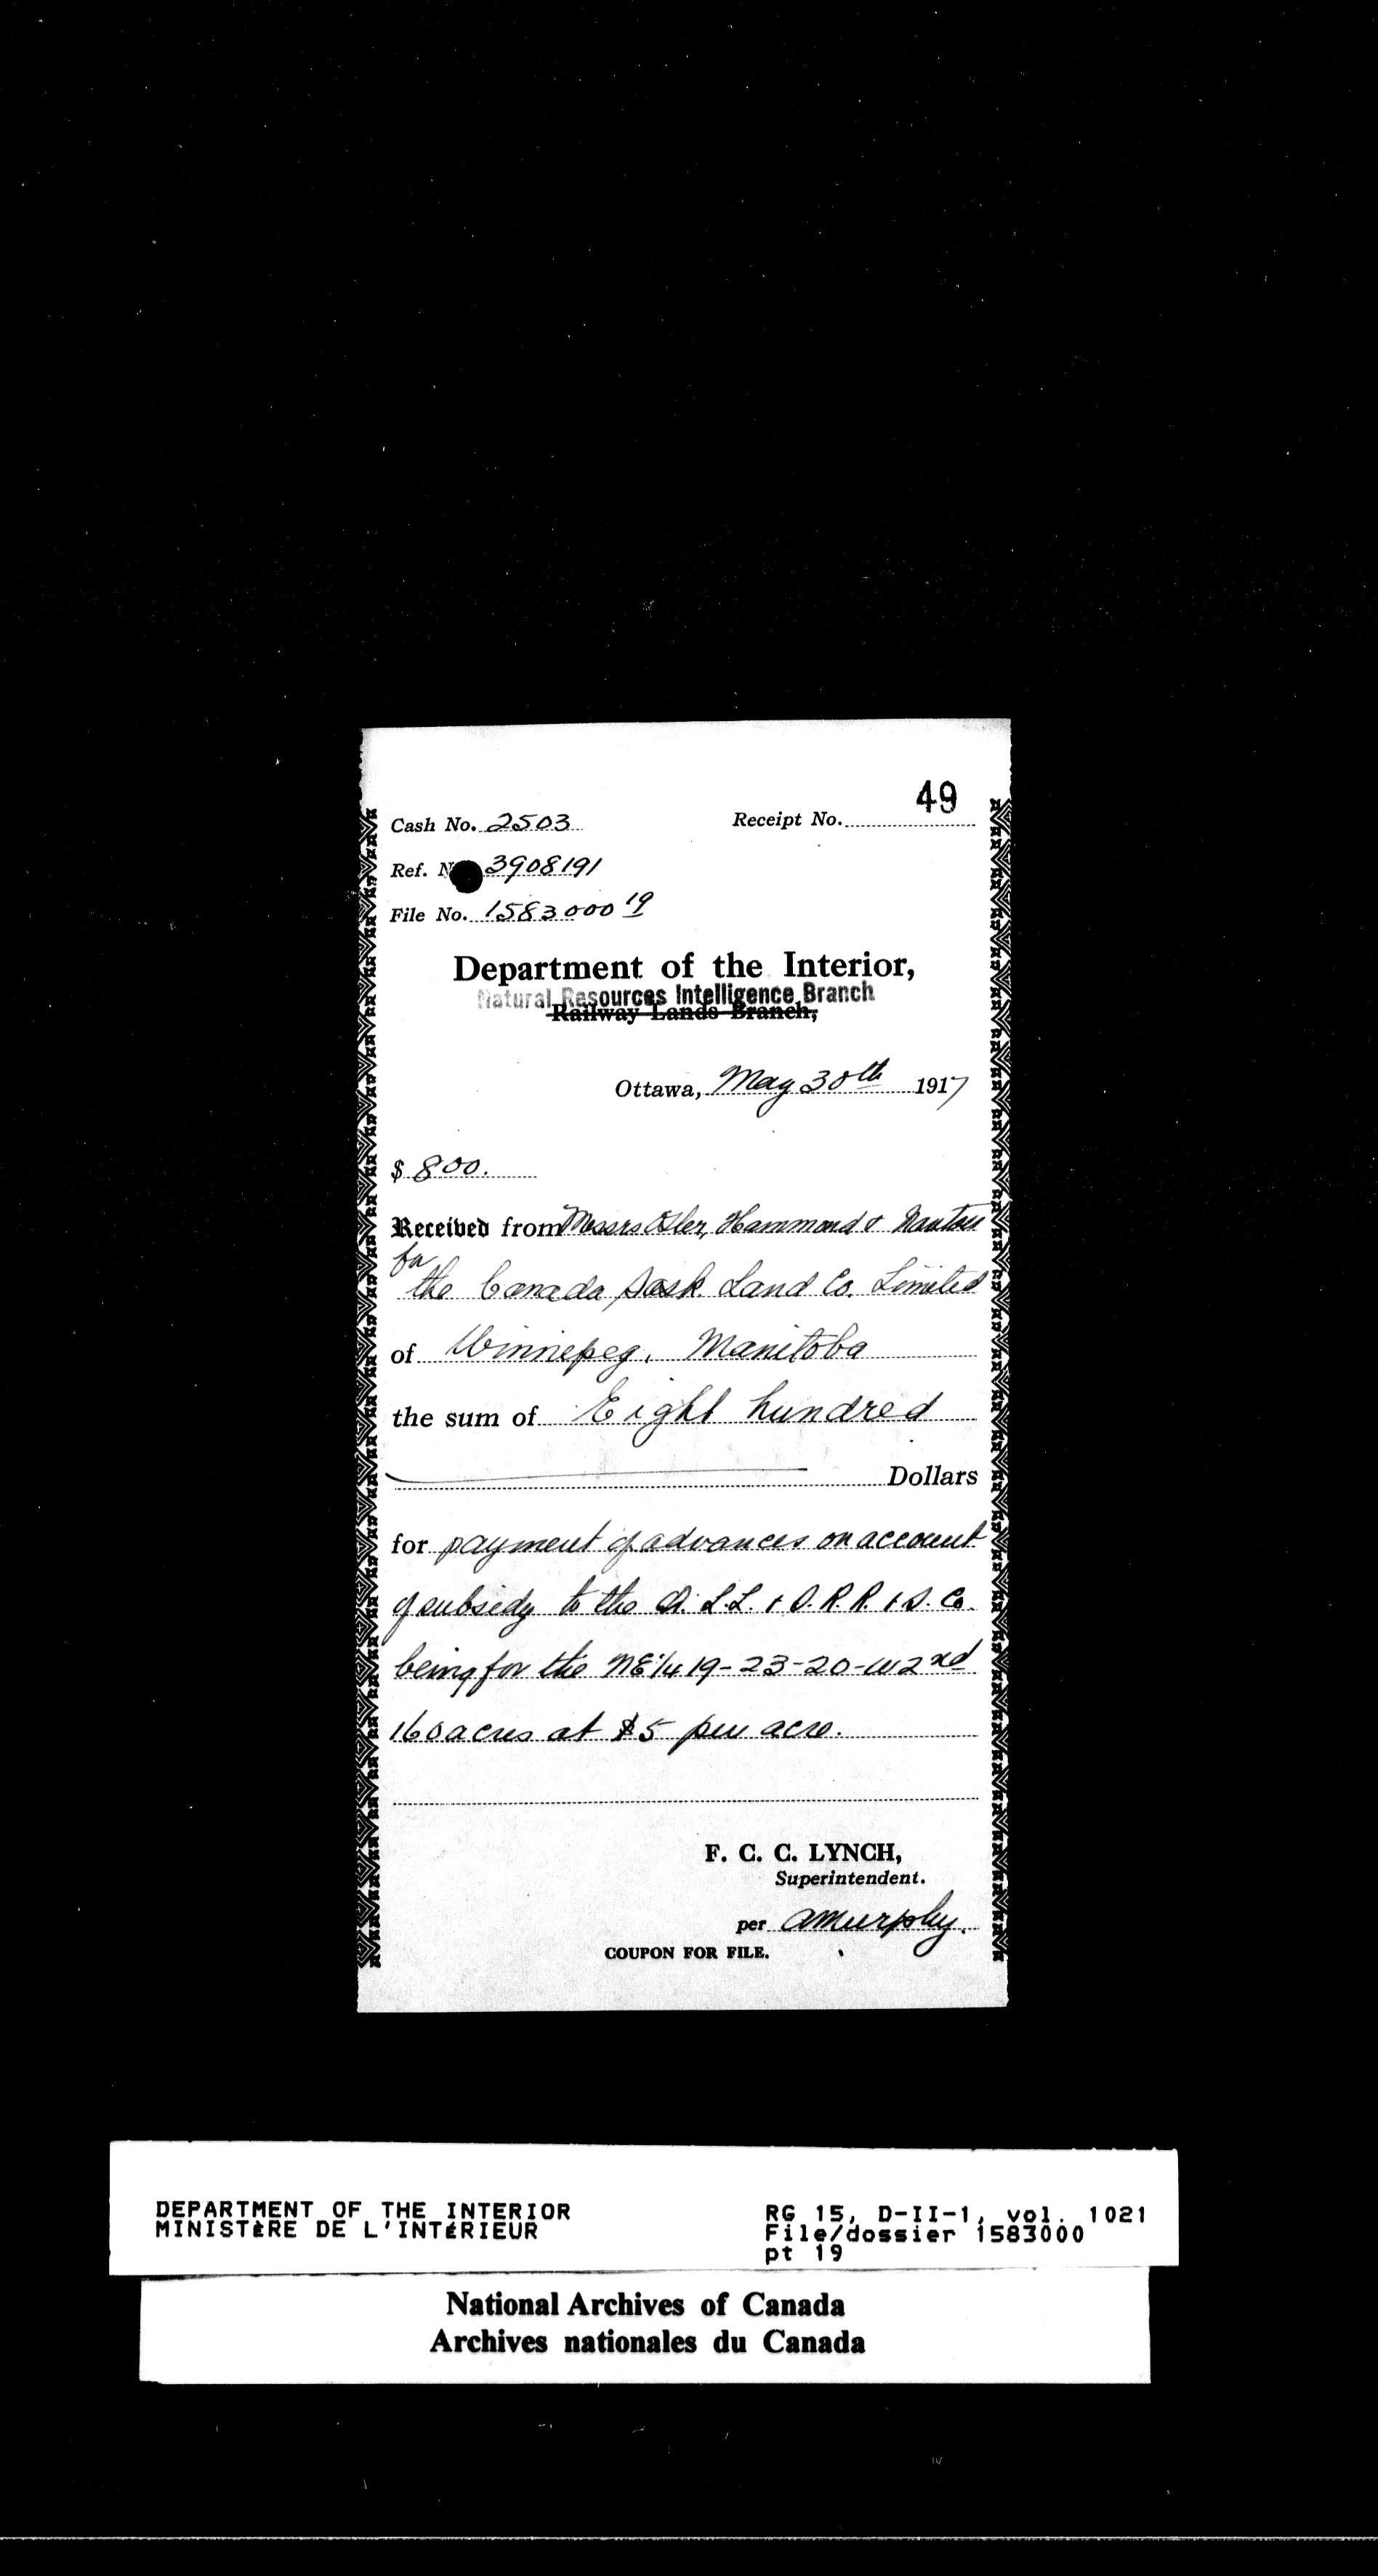 49
Cash No. 2503 Receipt No.
Ref. N 3908191
File No. 1583000 19
Department of the Interior,
Natural Resources Intelligence Branch
Railway Lands Branch,
Ottawa, May 30th 1917
$ 800.
Received from Messrs Osler, Hammond & Nanton
for
the Canada Sask. Land Co. Limited
of Winnipeg, Manitoba
the sum of Eight hundred
Dollars
for payment of advances on account
of subsidy to the Q. L. L. & S. R. R. & S. Co.
being for the NE 1/4 19-23-20-W2nd
160 acres at $5 per acre.
F. C. C. LYNCH,
Superintendent.
per AMurphy.
COUPON FOR FILE.
DEPARTMENT OF THE INTERIOR
MINISTÈRE DE L'INTÉRIEUR
RG 15, D-II-1, vol. 1021
File/dossier 1583000
pt 19
National Archives of Canada
Archives nationales du Canada